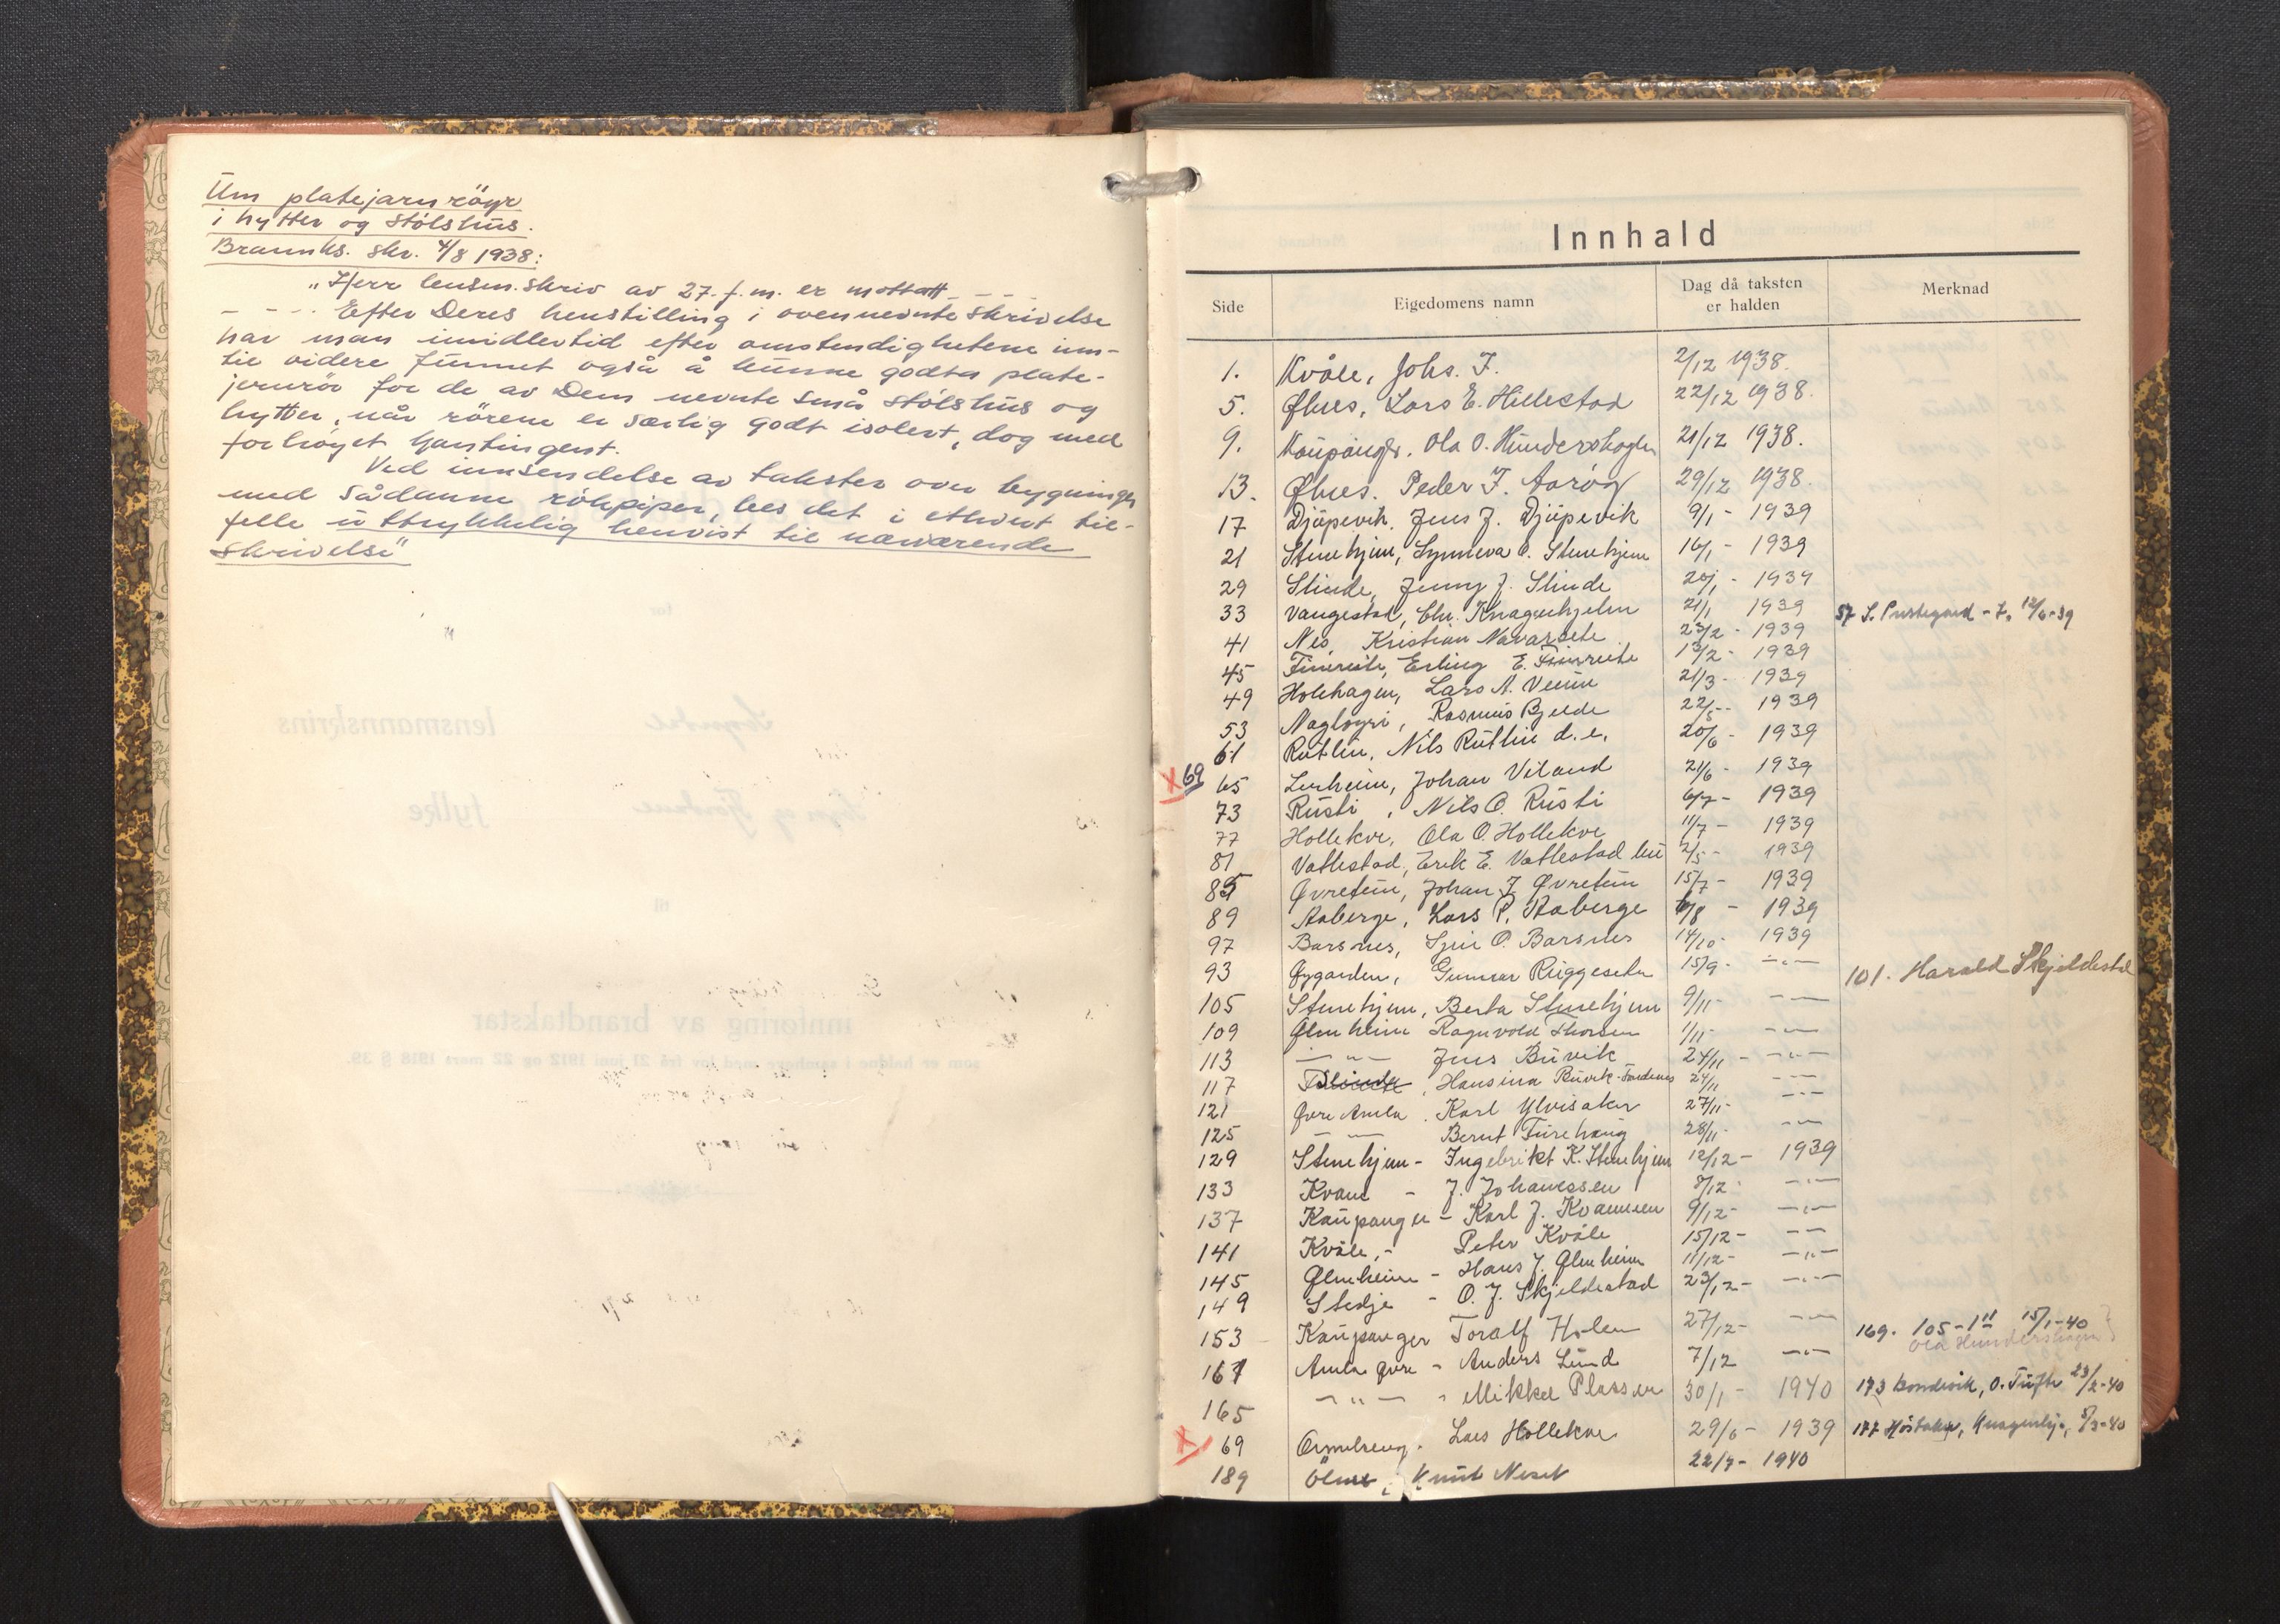 Um platejarnröyr
i hytter og stölshüs.
Brannks. skr. 4/8 1938:
"Herr lensm. skriv av 27. f. m. er mottatt - - - -
- - - . Efter Deres henstilling i ovennevnte skrivelse
har man imidlertid efter omstendighetene inn-
til videre funnet også å kunne godta plate-
jernrör for de av Dem nevnte små stölshüs og
hytter, når rörene er særlig godt isolert, dog med
forhöyet kontingent.
Ved innsendelse av takster over bygninger
med sådanne rökpiper, bes det i ethvert til-
felle uttrykkelig henvist til nærværende
skrivelse"
Innhald
Side Eigedomens namn Dag då taksten er halden Merknad
1. Kvåle, Johs. J. 2/12 1938.
5. Ølnes, Lars E. Hillestad 22/12 1938.
9. Kaupanger. Ola O. Hundershagen 21/12 1938.
13. Ølnes. Peder J. Aarøy 29/12 1938.
17 Djüpevik, Jens J. Djüpevik 9/1 - 1939
21 Stenehjem, Synneva O. Stenehjem 16/1 - 1939
29 Slinde, Jenny J. Slinde 20/1 - 1939
33 Vangestad, Chr. Knagenhjelm 21/1 1939 57 S. Prestegard - 7. 12/6-39
41 Nes, Kristian Navarsete 23/2 - 1939
45 Fimreite, Erling E. Fimreite 13/2 - 1939
49 Holehagen, Lars A. Venüm 21/3 - 1939
53 Nagløyri, Rasmus Bjelde 22/5 - 1939
61 Rutlin, Nils Rutlin d. e. 20/6 - 1939
X 69
65 Lerheim, Johan Viland 21/6 - 1939
73 Rüsti, Nils O. Rüsti 6/7 - 1939
77 Hollekve, Ola O. Hollekve 11/7 - 1939
81 Vatlestad, Erik E. Vatlestad bü 2/5 - 1939
85 Øvretün, Johan J. Øvretün 15/7 - 1939
89 Aaberge, Lars P. Aaberge 6/8 - 1939
97 Barsnes, O. Barsnes 14/10 - 1939
93 Øygarden, Gunnar Rüggeseter 15/9 - -"- 101. Harald Skjeldestad
105 Stenehjem, Berta Stenehjem 9/11 - -"-
109 Ølmheim Ragnvald Thorsen 1/11 - -"-
113 -"- Jens Büvik 24/11 - -"-
117 Slinde, Hansina Büvik - 24/11 -"-
121 Øvre Amla. Karl Ylvisaker 27/11 - -"-
125 -"- Bernt Fürehaug 28/11 - -"-
129 Stenehjem - Ingebrikt K. Stenehjem 12/12 - 1939
133 Kvam - J. Johanessen 8/12 - -"-
137 Kaupanger - Karl J. Kvammen 9/12 - -"-
141 Kvåle, - Peter Kvåle 15/12 - -"-
145 Ølmheim - Hans J. Ølmheim 11/12 - -"-
149 Stedje - O. J. Skjeldestad 23/12 - -"-
153 Kaupanger Toralf Holen 27/12 - -"- 169. 105-1" 15/1-40
Ola Hundershagen
161 Amla øvre - Anders Lünd 7/12 -"-
165 -"- - Mikkel Plassen 30/1 - 1940 173 Bondevik, O. Tüfte 23/2-40
X 69 Ormelreng. Lars Hollekve 29/6 - 1939 177 Høstaker, Knagenhj., 5/3-40
189 Ölnes, Knüt Neset 22/7 - 1940